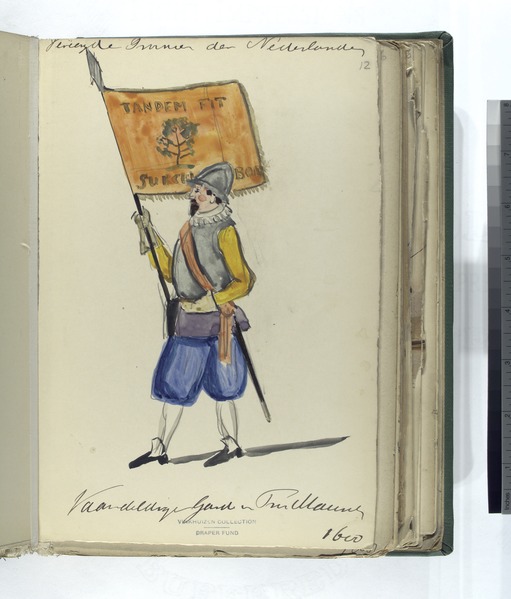 Verein de Provinciën der Nederlanden
12
TANDEM FIT
SURCU BOR
Vaandeldrig Gard v. Prins Maurits
VINKHUIZEN COLLECTION
DRAPER FUND
1600